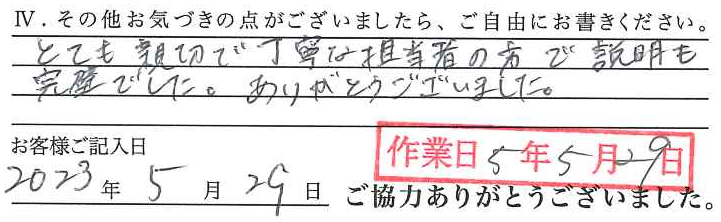 Ⅳ．その他お気づきの点がございましたら、ご自由にお書きください。
とても親切で丁寧な担当者の方で説明も
完璧でした。ありがとうございました。
お客様ご記入日
作業日5年5月29日
2023年5月29日
ご協力ありがとうございました。